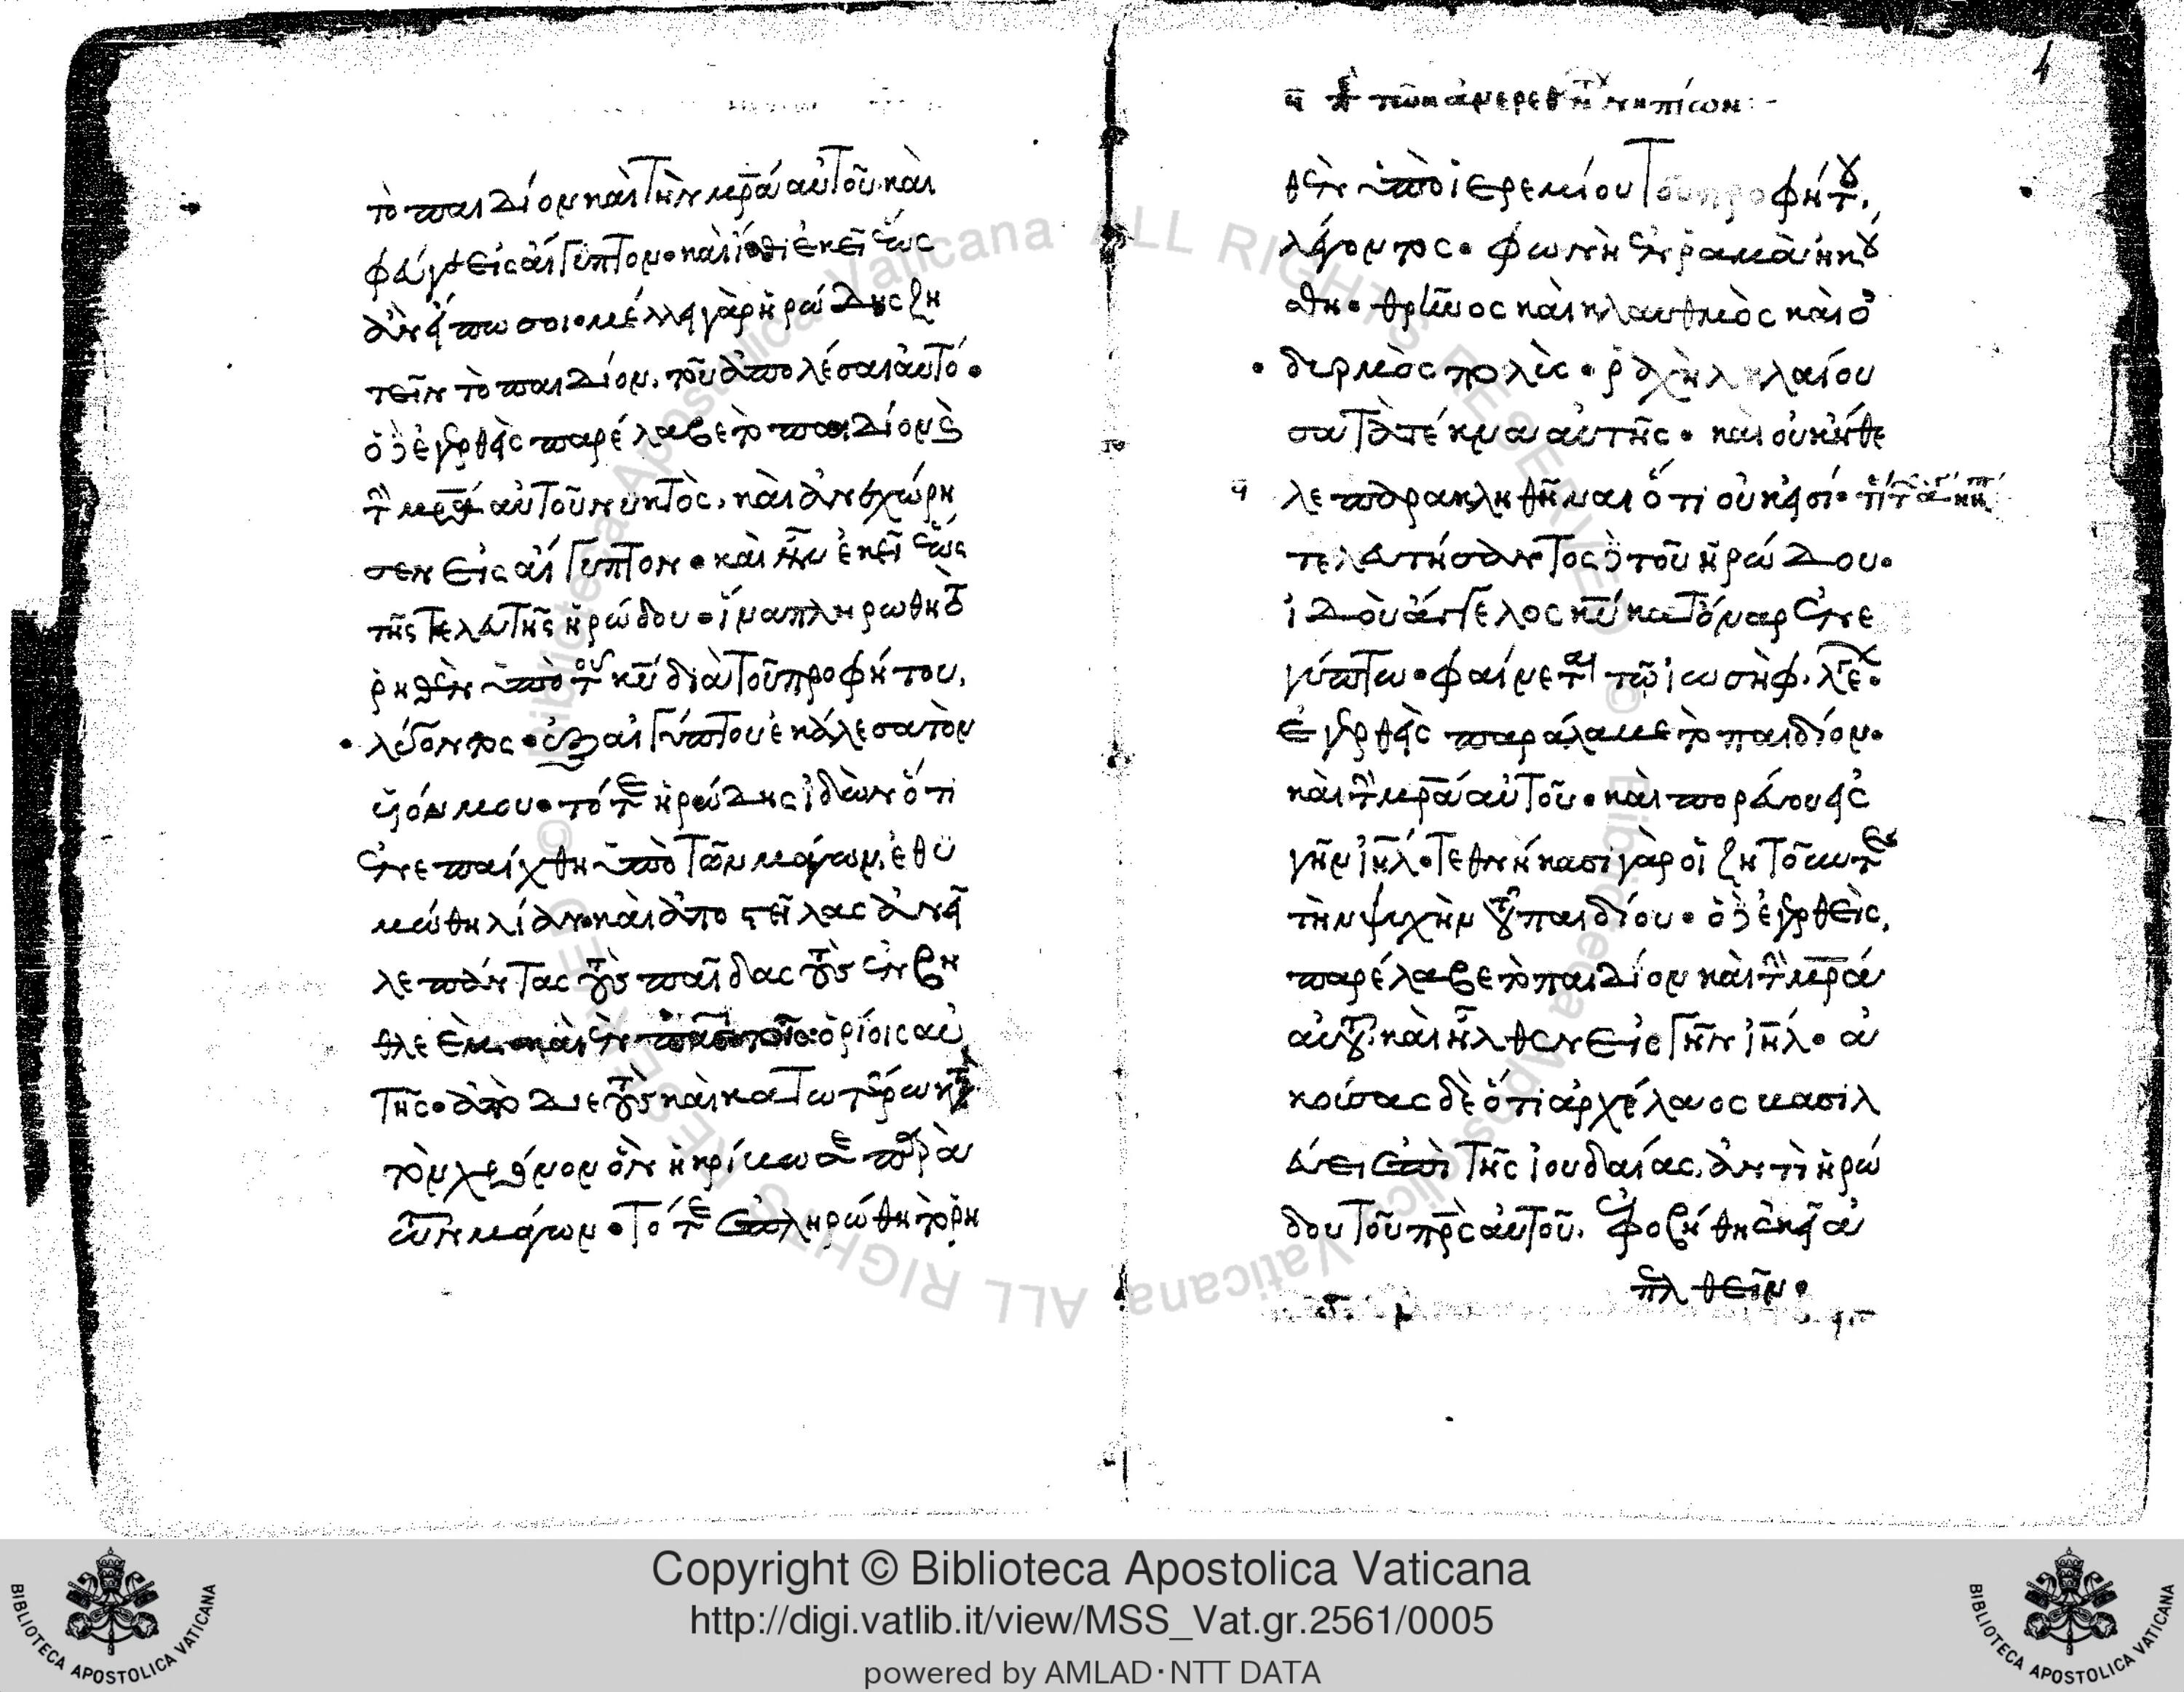 τὸ παιδίον καὶ τὴν μρ̄α αὐτοῦ. καὶ
φεῦγε εἰς αἴγυπτον· καὶ ἴσθι ἐκεῖ ἕως
ἂν εἴπω σοι· μέλλει γὰρ ἡρώδης ζη
τεῖν τὸ παιδίον. τοῦ ἀπολέσαι αὐτό·
ὁ δὲ ἐγερθεὶς παρέλαβε τὸ παιδίον κ̀
τ̀ μρ̄α αὐτοῦ νυκτὸς, καὶ ἀνεχώρη
σεν εἰς αἴγυπτον· καὶ ἦν ἐκεῖ ἕως
τῆς τελευτῆς ἡρώδου· ἵνα πληρωθῆ τὸ
ῥηθὲν ὑπὸ τοῦ κῡ διὰ τοῦ προφήτου,
λέγοντος· ἐξ αἰγύπτου ἐκάλεσα τὸν
υἱόν μου· τότε ἡρώδης ἰδὼν ὅτι
ἐνεπαίχθη ὑπὸ τῶν μάγων, ἐθυ
μώθη λίαν· καὶ ἀποστείλας ἀνεῖ
λε πάντας τοὺς παῖδας τοὺς ἐν βη
θλεὲμ· καὶ ἐν πᾶσι τοῖς ὁρίοις αὐ
τῆς· ἀπὸ διετοὺς καὶ κατωτέρω κ̀
τὸν χρόνον ὃν ἠκρίβωσε παρὰ
τῶν μάγων· τότε ἐπληρώθη τὸ ῥη
τῶν ἀναιρεθ νηπίων:-
θὲν ὑπὸ ἱερεμίου τοῦ προφήτου,
λέγοντος· φωνὴ ἐν ῥαμὰ ἠκού
σθη· θρῆνος καὶ κλαυθμὸς καὶ ὀ
δυρμὸς πολὺς· ῥαχὴλ κλαίου
σα τὰ τέκνα αὐτῆς· καὶ οὐκ ἤθε
λε παρακληθῆναι ὅτι οὐκ εἰσί·
τελευτήσαντος δὲ τοῦ ἡρώδου·
ἰδοὺ ἄγγελος κῡ κατ' ὄναρ ἐν ε
γύπτω· φαίνεται τῷ ἰωσὴφ. λέγ·
ἐγερθεὶς παράλαβε τὸ παιδίον·
καὶ τ̀ μρ̄α αὐτοῦ· καὶ πορεύου εἰς
γῆν ἰηλ̄· τεθνήκασι γὰρ οἱ ζητοῦντες
τὴν ψυχὴν τοῦ παιδίου· ὁ δὲ ἐγερθεὶς,
παρέλαβε τὸ παιδίον καὶ τ̀ μρ̄α
αὐτοῦ. καὶ ἦλθεν εἰς γῆν ἰηλ̄· ἀ
κούσας δὲ ὅτι ἀρχέλαος βασιλ
εύει ἐπὶ τῆς ἰουδαίας, ἀντὶ ἡρώ
δου τοῦ πρ̄ς αὐτοῦ, ἐφοβήθη ἐκεῖ ἀ
πελθεῖν·
Biblioteca Apostolica Vaticana ALL RIGHTS RESERVED ©
Copyright © Biblioteca Apostolica Vaticana
http://digi.vatlib.it/view/MSS_Vat.gr.2561/0005
powered by AMLAD·NTT DATA
BIBLIOTECA APOSTOLICA VATICANA
BIBLIOTECA APOSTOLICA VATICANA